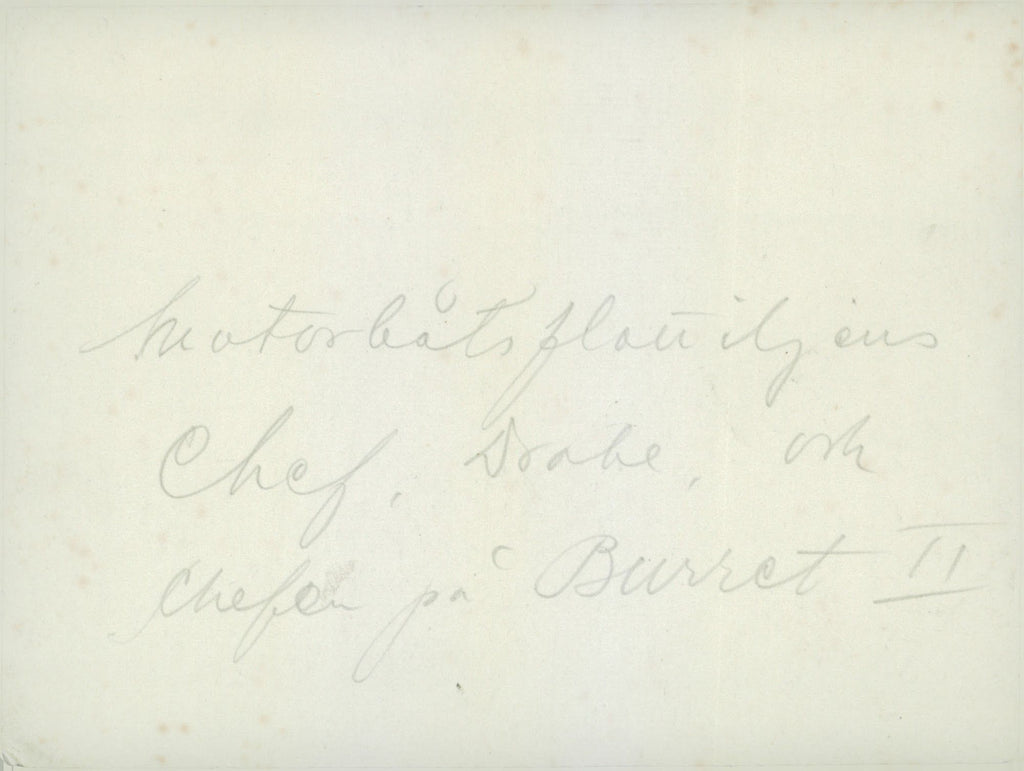 Motorbåtsflottiljens
Chef, Drake, och
Chefen på Burret II